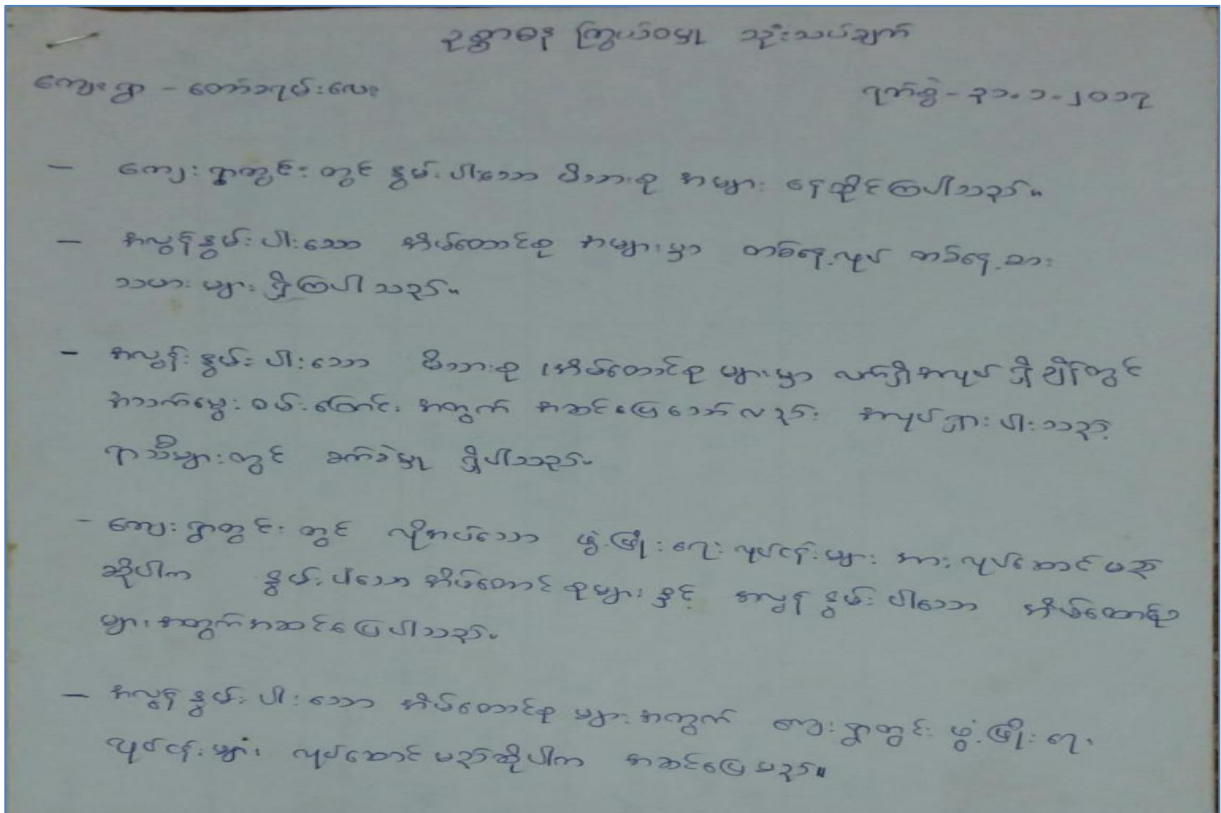 ဥစ္စာဓန ကြွယ်ဝမှု သုံးသပ်ချက်
ကျေးရွာ - တော်ဘုမ်းလေး ရက်စွဲ - ၃၁.၁.၂၀၁၇
- ကျေးရွာတွင်း တွင် နွမ်းပါးသော မိသားစု အများ နေထိုင်ကြပါသည်။
- အလွန်နွမ်းပါးသော အိမ်ထောင်စု အများမှာ တစ်နေ့လုပ် တစ်နေ့စား
သမား များ ရှိကြပါသည်။
- အလွန်နွမ်းပါးသော မိသားစု၊ အိမ်ထောင်စု များမှာ လက်ရှိအလုပ် ရှိချိန်တွင်
အသက်မွေး ဝမ်းကြောင်း အတွက် အဆင်ပြေသော်လည်း အလုပ်ရှားပါးသည့်
ရာသီများတွင် ခက်ခဲမှု ရှိပါသည်။
- ကျေးရွာတွင်း တွင် လိုအပ်သော ဖွံ့ဖြိုးရေး လုပ်ငန်းများ အား လုပ်ဆောင်မည်
ဆိုပါက နွမ်းပါးသော အိမ်ထောင်စုများ နှင့် အလွန်နွမ်းပါးသော အိမ်ထောင်စု
များ အတွက် အဆင်ပြေပါသည်။
- အလွန်နွမ်းပါးသော အိမ်ထောင်စု များ အတွက် ကျေးရွာတွင်း ဖွံ့ဖြိုးရေး
လုပ်ငန်းများ လုပ်ဆောင်မည်ဆိုပါက အဆင်ပြေမည်။